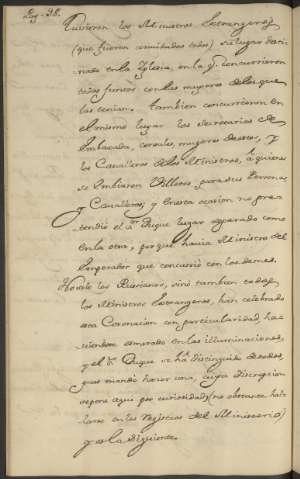 Tuvieron los Ministros Extrangeros
(que fueron combidados todos) su lugar desti-
nado en la Iglesia, en la q. concurrieron
todos juntos con las mugeres de los que
las tenian. Tambien concurrieron en
el mismo lugar los Secretarios de
Embaxada, consules, mugeres de estos, y
los Cavalleros de los Ministros, à quienes
se embiaron Villetes, para sus Personas,
y Cavalleros; y en esta ocasion no pre-
tendiò el Duque lugar separado como
en la otra, porque havia Ministro del
Emperador que concurriò con los demas.
No solo los Rusianos, sinò tambien todos
los Ministros Extrangeros, han celebrado
esta Coronacion con particularidad, ha-
ciendose admirado en las illuminaciones,
y el Duque se hà distinguido de todos,
pues mandò hacer una, cuya descripcion
espero aqui por curiosidad (no obstante ha-
llarse en los registros del Ministerio)
y es la siguiente.